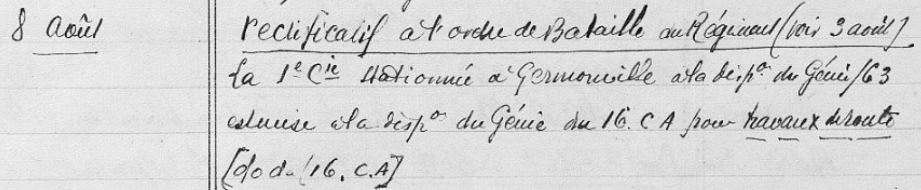 8 août
rectificatif à l'ordre de Bataille du Régiment (voir 3 août)
La 1e Cie stationnée à Germonville à la dispon du Génie/63
est mise à la dispon du Génie du 16. C A pour travaux de route
[o du (16. C.A]